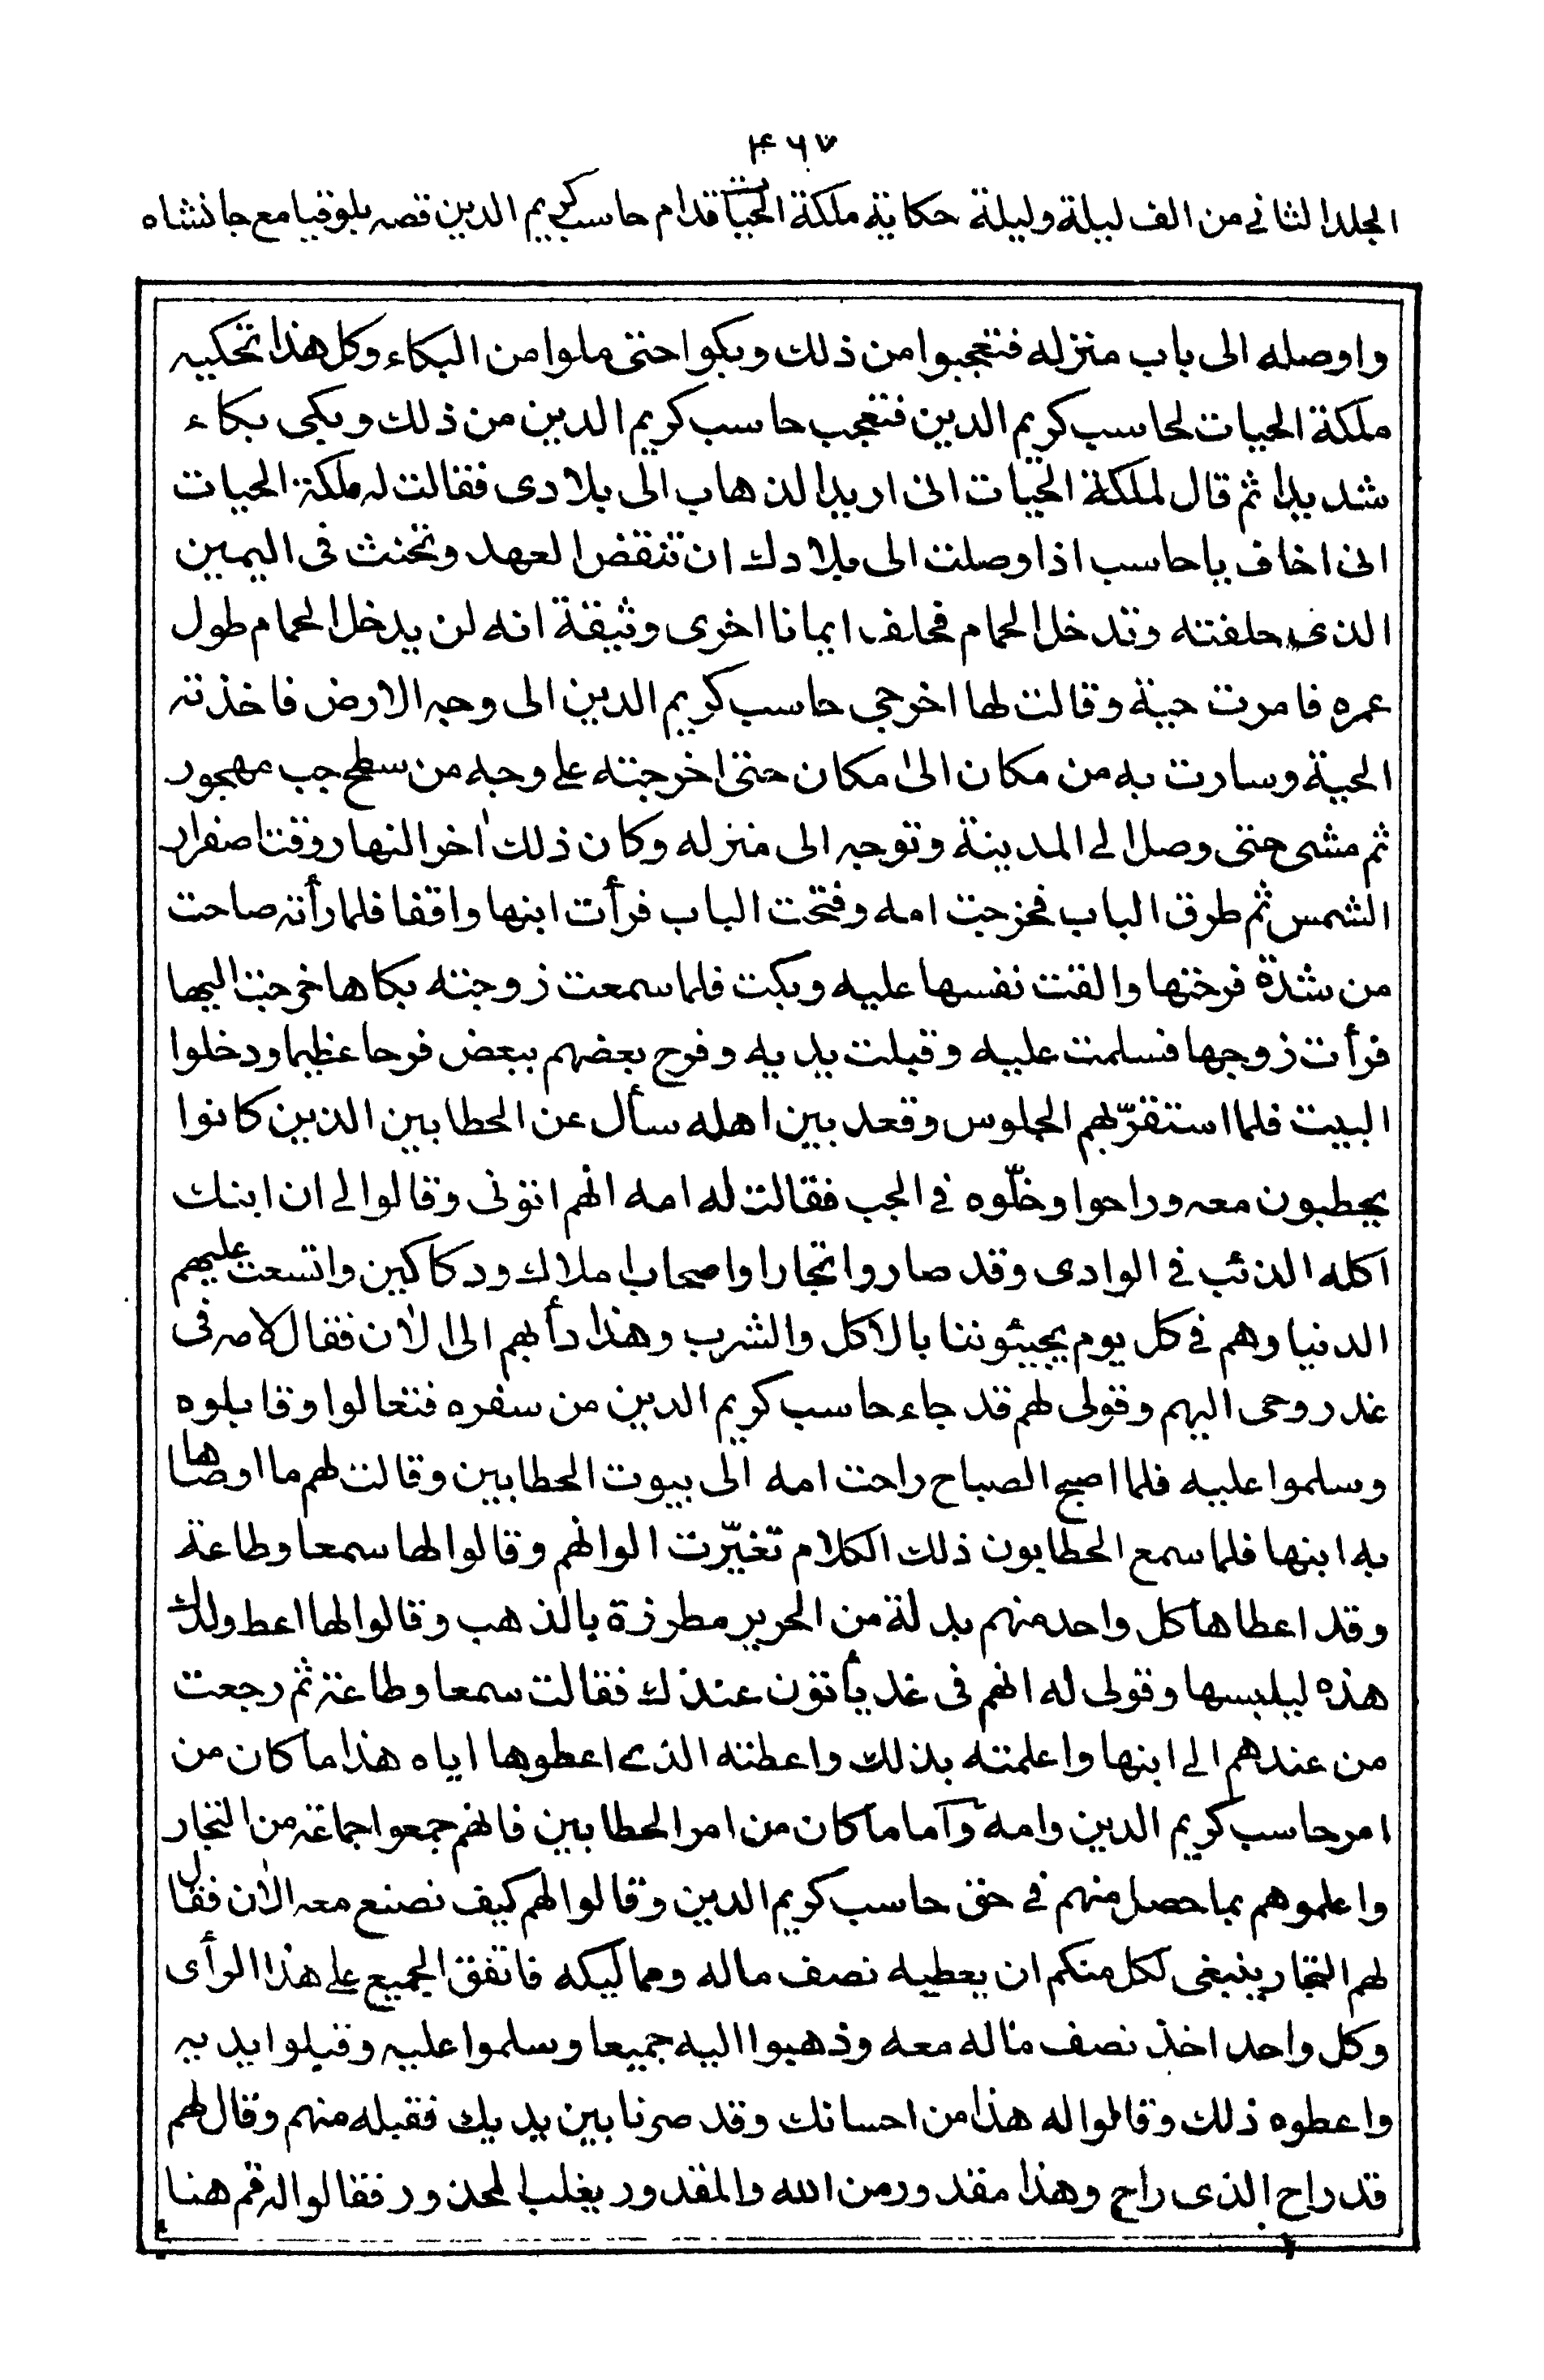 ۴۶۷
الجلد الثاني من الف ليلة وليلة حكاية ملكة الحيات قدام حاسب كريم الدين قصه بلوقيا مع جانشاه
واوصله الى باب منزله فتعجبوا من ذلك وبكوا حتى ملوا من البكاء وكل هذا تحكيه
ملكة الحيات لحاسب كريم الدين فتعجب حاسب كريم الدين من ذلك وبكى بكاء
شديدا ثم قال لملكة الحيات انى اريد الذهاب الى بلادى فقالت له ملكة الحيات
انى اخاف يا حاسب اذا وصلت الى بلادك ان تنقض العهد وتحنث فى اليمين
الذى حلفته وتدخل الحمام فحلف ايمانا اخرى وثيقة انه لن يدخل الحمام طول
عمره فامرت حية وقالت لها اخرجى حاسب كريم الدين الى وجه الارض فاخذته
الحية وسارت به من مكان الى مكان حتى اخرجته على وجه من سطح جب مهجور
ثم مشى حتى وصل الى المدينة وتوجه الى منزله وكان ذلك اخر النهار وقت اصفرار
الشمس ثم طرق الباب فخرجت امه وفتحت الباب فرأت ابنها واقفا فلما رأته صاحت
من شدة فرحتها والقت نفسها عليه وبكت فلما سمعت زوجته بكاها خرجت اليها
فرأت زوجها فسلمت عليه وقبلت يديه وفرح بعضهم ببعض فرحا عظيما ودخلوا
البيت فلما استقرّ بهم الجلوس وقعد بين اهله سأل عن الحطابين الذين كانوا
يحطبون معه وراحوا وخلّوه في الجب فقالت له امه انهم اتونى وقالوا لي ان ابنك
اكله الذئب في الوادى وقد صاروا تجارا واصحاب املاك ودكاكين واتسعت عليهم
الدنيا وهم في كل يوم يجيئوننا بالاكل والشرب وهذا دأبهم الى الآن فقال لامه فى
غد روحى اليهم وقولى لهم قد جاء حاسب كريم الدين من سفره فتعالوا وقابلوه
وسلموا عليه فلما اصبح الصباح راحت امه الى بيوت الحطابين وقالت لهم ما اوصاها
به ابنها فلما سمع الحطابون ذلك الكلام تغيّرت الوانهم وقالوا لها سمعا وطاعة
وقد اعطاها كل واحد منهم بدلة من الحرير مطرزة بالذهب وقالوا لها اعط ولدك
هذه ليلبسها وقولى له انهم فى غد يأتون عندك فقالت سمعا وطاعة ثم رجعت
من عندهم الى ابنها واعلمته بذلك واعطته الذى اعطوها اياه هذا ما كان من
امر حاسب كريم الدين وامه وآما ما كان من امر الحطابين فانهم جمعوا جماعة من التجار
واعلموهم بما حصل منهم في حق حاسب كريم الدين وقالوا لهم كيف نصنع معه الآن فقال
لهم التجار ينبغى لكل منكم ان يعطيه نصف ماله ومماليكه فاتفق الجميع على هذا الرأى
وكل واحد اخذ نصف ماله معه وذهبوا اليه جميعا وسلموا عليه وقبلوا يديه
واعطوه ذلك وقالوا له هذا من احسانك وقد صرنا بين يديك فقبله منهم وقال لهم
قد راح الذى راح وهذا مقدور من الله والمقدور يغلب المحذور فقالوا له قم هنا